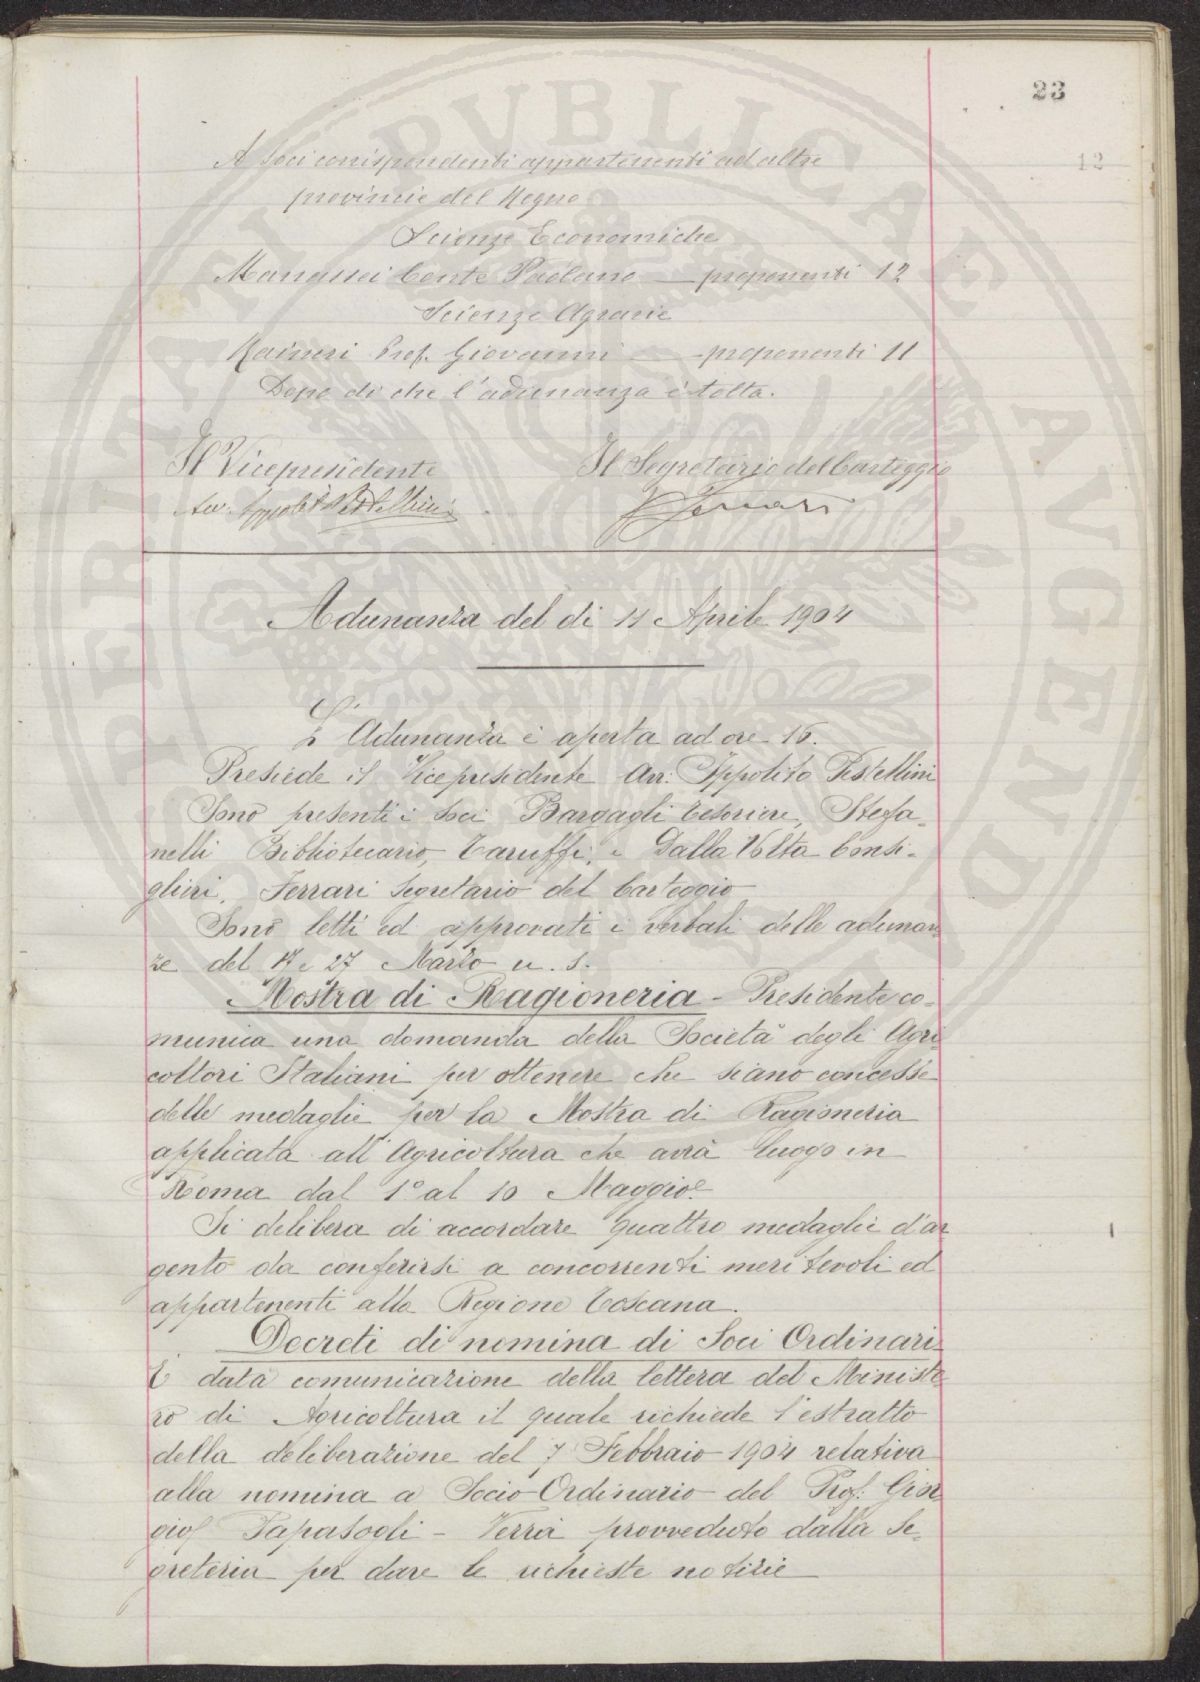 23
12
A Soci corrispondenti appartenenti ad altre
provincie del Regno
Scienze Economiche
Manassei Conte Paolano — proponenti 12
Scienze Agrarie
Raineri Prof. Giovanni — proponenti 11
Dopo di che l'adunanza è tolta.
Il Vicepresidente
Il Segretario del Carteggio
Avv. Ippolito Pestellini
Ferrari
Adunanza del di 11 Aprile 1904
L'Adunanza è aperta ad ore 16.
Presiede il Vicepresidente Avv. Ippolito Pestellini
Sono presenti i Soci Bargagli Tesoriere, Stefa-
nelli Bibliotecario, Taruffi, e Dalla Volta Consi-
glieri, Ferrari Segretario del Carteggio
Sono letti ed approvati i verbali delle adunan
ze del 17 e 27 Marzo u. s.
Mostra di Ragioneria - Presidente co-
munica una domanda della Società degli Agri
coltori Italiani per ottenere che siano concesse
delle medaglie per la Mostra di Ragioneria
applicata all'Agricoltura che avrà luogo in
Roma dal 1° al 10 Maggio
Si delibera di accordare quattro medaglie d'ar
gento da conferirsi a concorrenti meritevoli ed
appartenenti alla Regione Toscana.
Decreti di nomina di Soci Ordinari
È data comunicazione della lettera del Ministe
ro di Agricoltura il quale richiede l'estratto
della deliberazione del 7 Febbraio 1904 relativa
alla nomina a Socio Ordinario del Prof. Gior
gio Papasogli - Verrà provveduto dalla Se-
greteria per dare le richieste notizie
PVBLICAE AVGENDAE